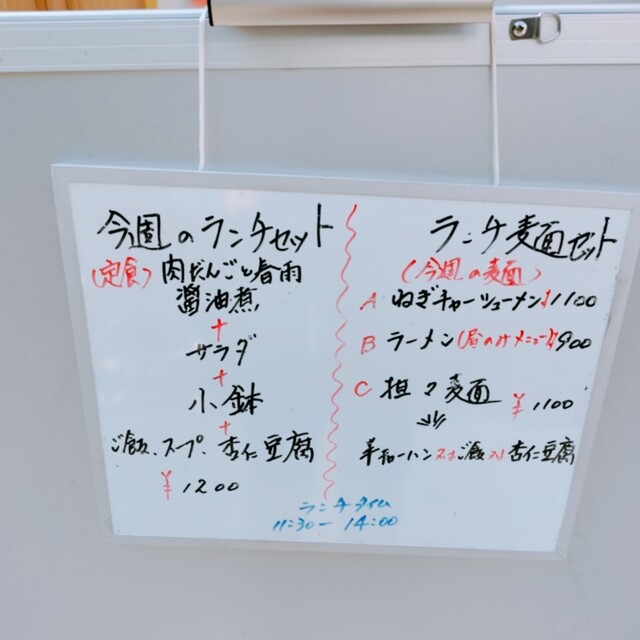 今週のランチセット
(定食) 肉だんごと春雨
醤油煮
+
サラダ
+
小鉢
+
ご飯、スープ、杏仁豆腐
¥1200
ランチ麺セット
(今週の麺)
A ねぎチャーシューメン ¥1100
B ラーメン (昼のみメニュー) ¥900
C 担々麺 ¥1100
半チャーハン or ご飯 杏仁豆腐
ランチタイム
11:30ー14:00